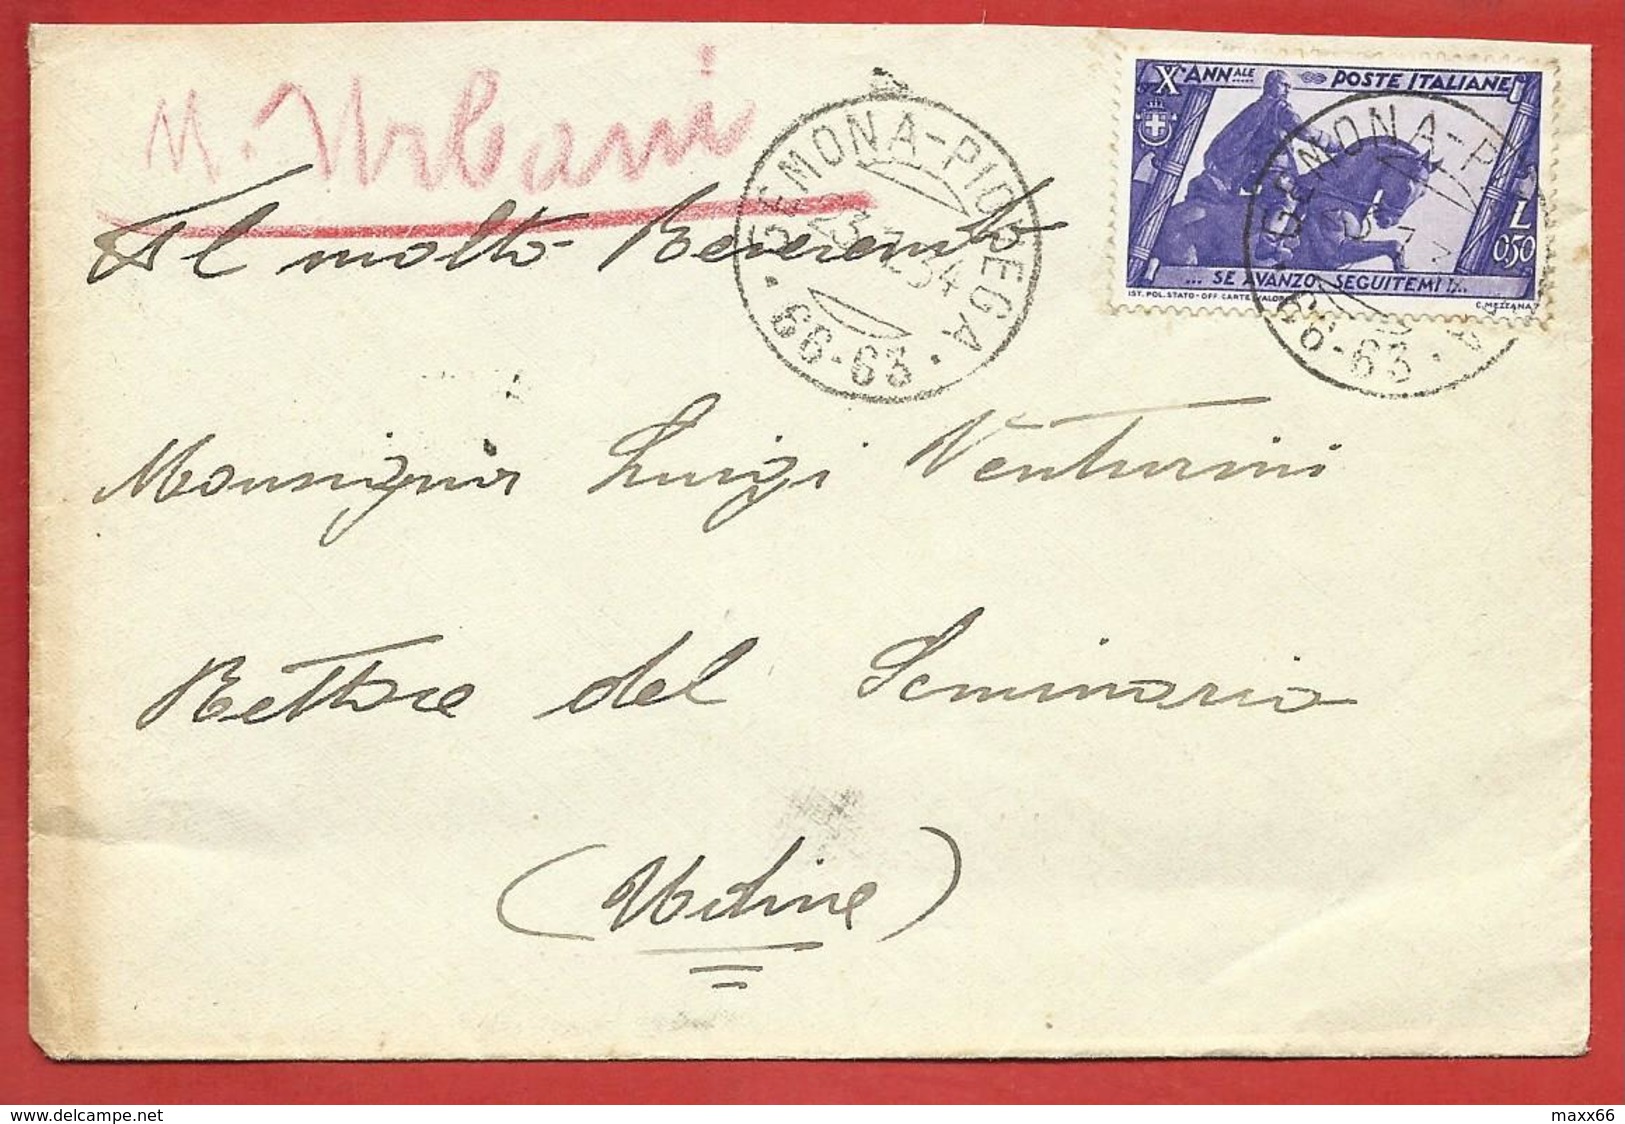 M. Urbani
Al molto Reverendo
Monsignor Luigi Venturini
Rettore del Seminario
(Udine)
GEMONA-PIOVEGA
66-63
X ANNALE POSTE ITALIANE
L 0,50
... SE AVANZO, SEGUITEMI
IST. POL. STATO-OFF. CARTE VALORI
C. MEZZANA
GEMONA-P
66-63
www.delcampe.net
maxx66